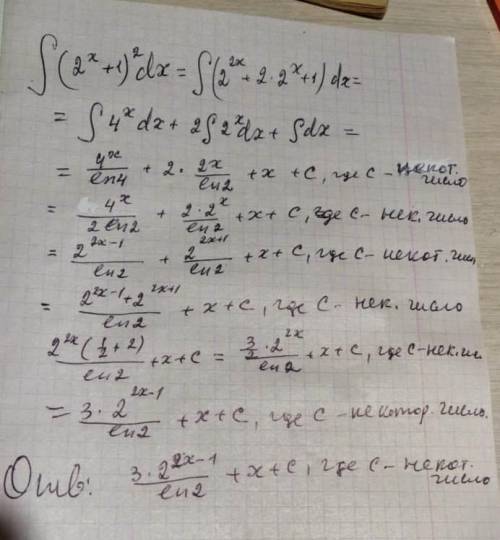 ∫(2^x+1)^2 dx = ∫(2^{2x} + 2·2^x+1) dx =
= ∫4^x dx + 2∫2^x dx + ∫dx =
= 4^x/ln4 + 2· 2^x/ln2 + x + C, где C - некот. число
= 4^x/(2 ln2) + 2·2^x/ln2 + x + C, где C - нек. число
= 2^{2x-1}/ln2 + 2^{2x+1}/ln2 + x + C, где C - некот. чис
= (2^{2x-1} + 2^{2x+1})/ln2 + x + C, где C - нек. число
2^{2x}(1/2 + 2)/ln2 + x + C = 3/2·2^{2x}/ln2 + x + C, где C - нек. чи
= 3·2^{2x-1}/ln2 + x + C, где C - некотор. число.
Отв: 3·2^{2x-1}/ln2 + x + C, где C - некот. число